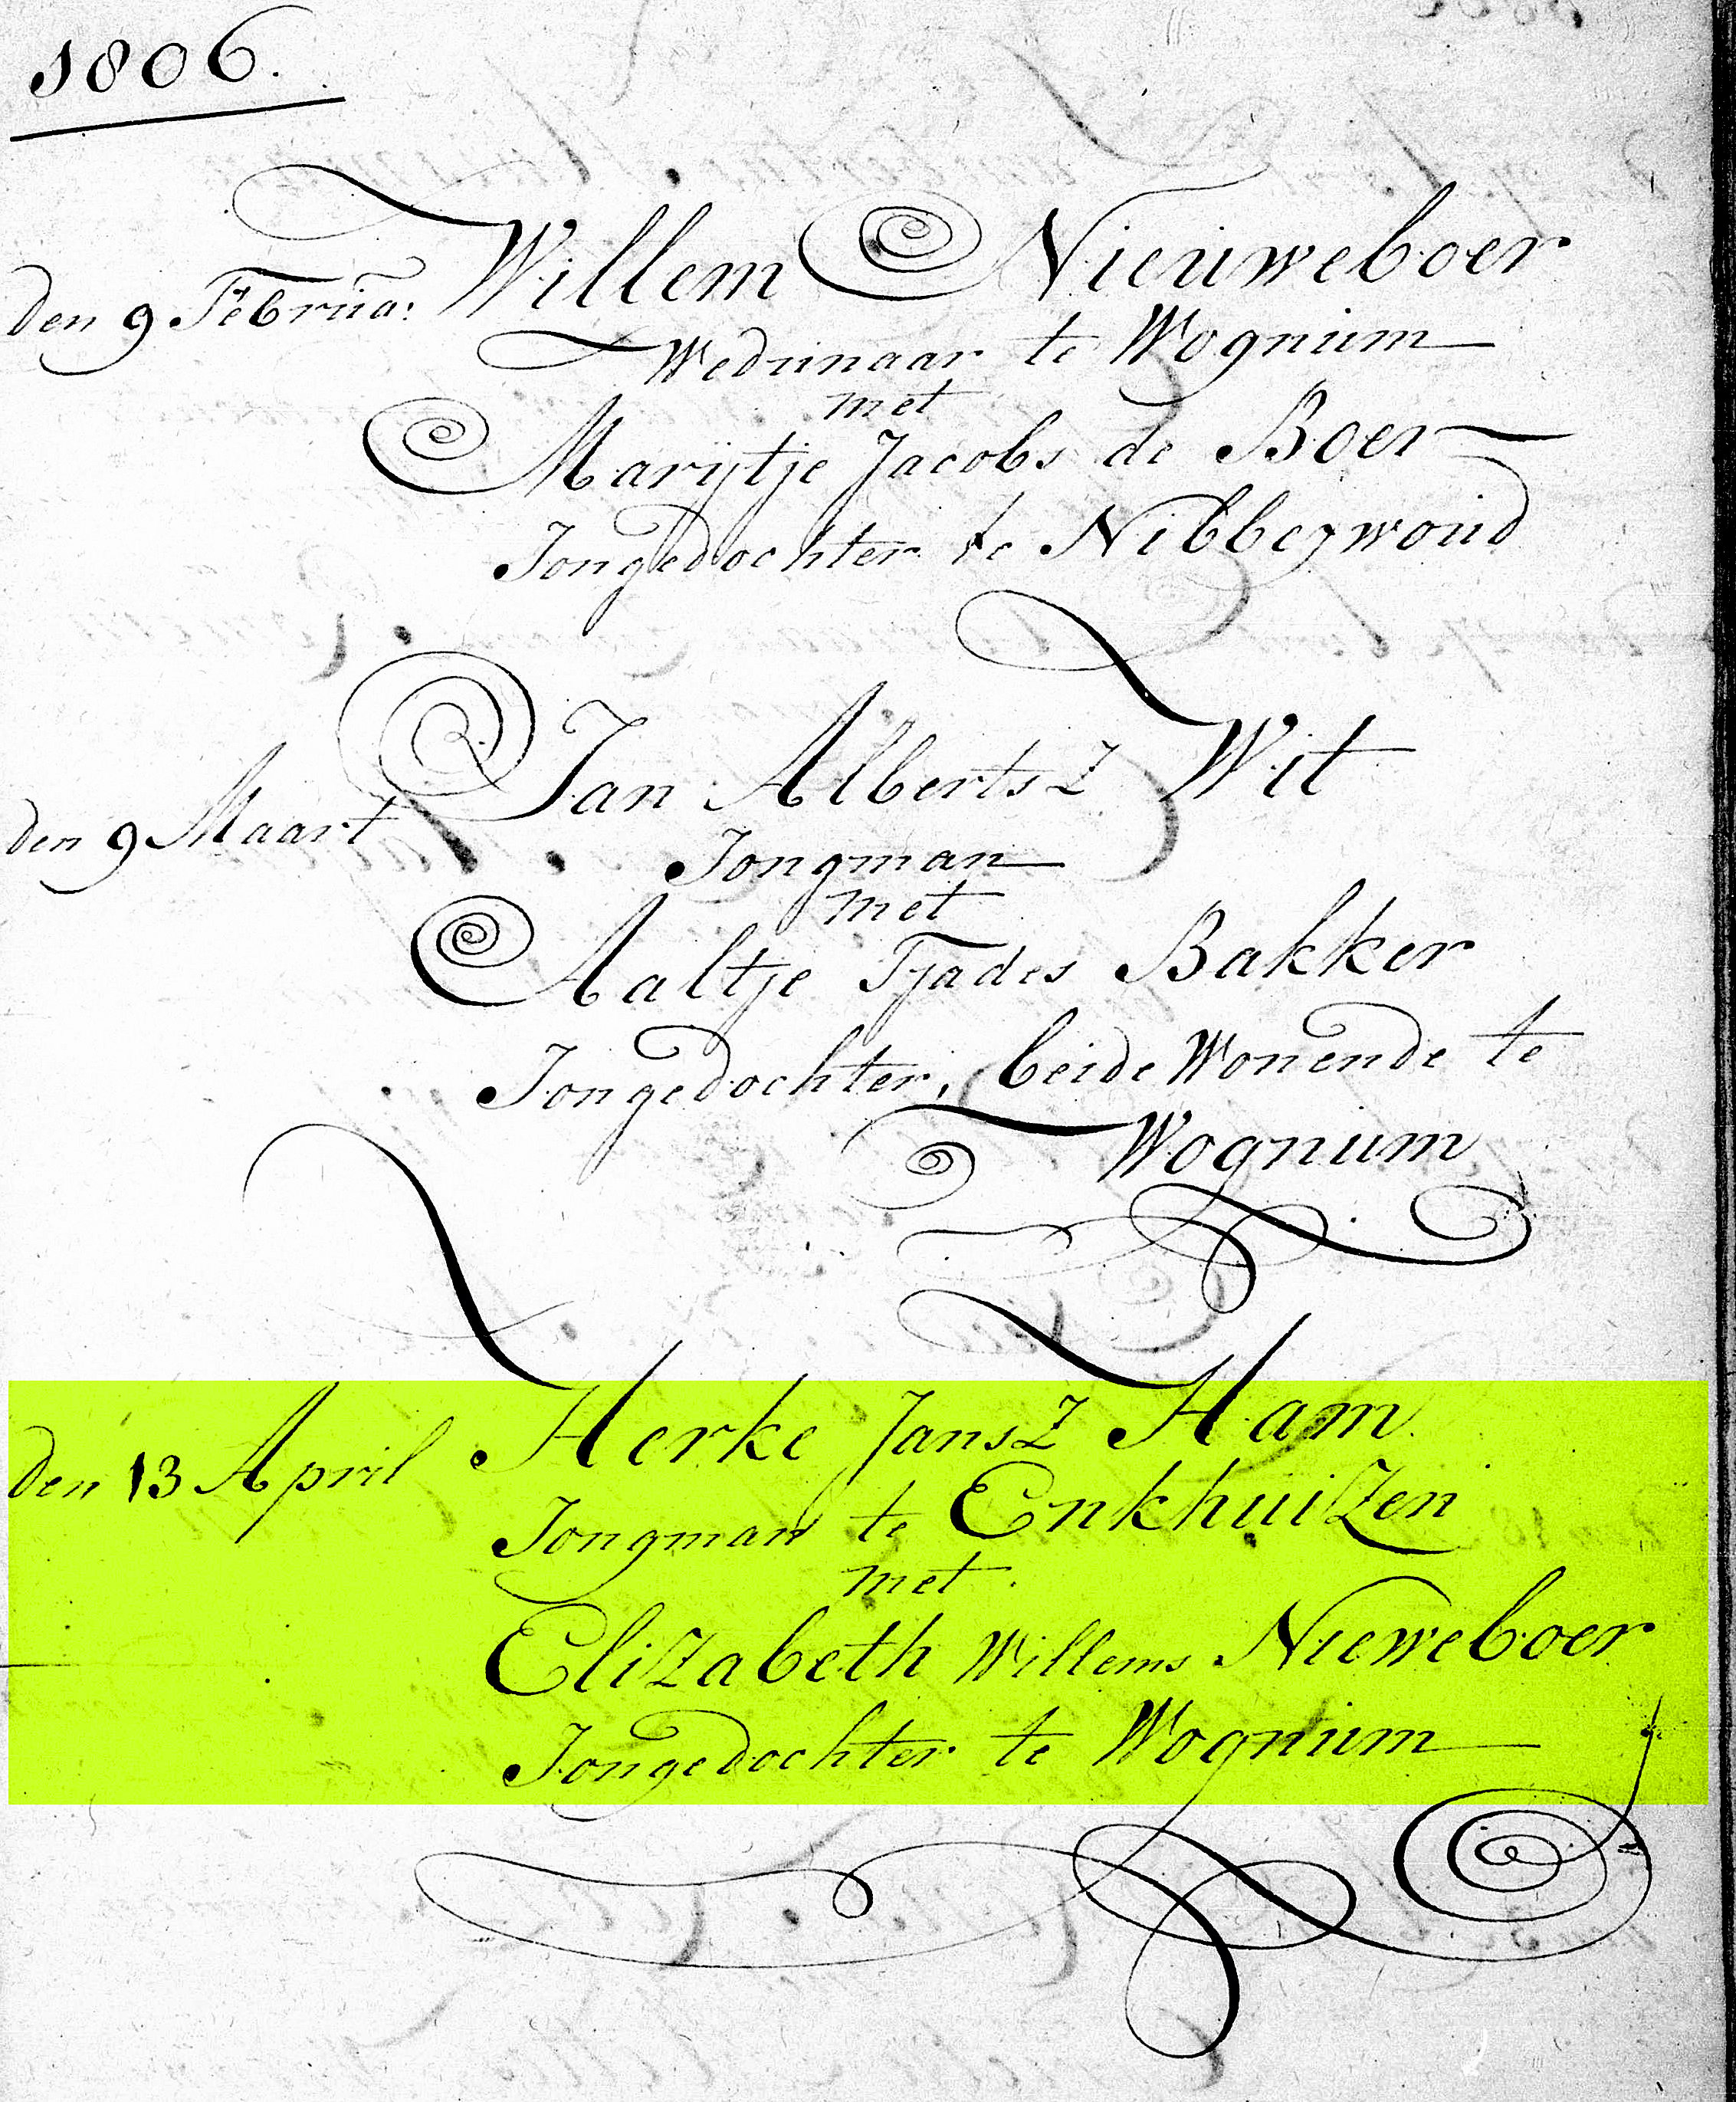 1806.
den 9 Februa: Willem Nieuweboer
Wedunaar te Wognum
met
Marijtje Jacobs de Boer
Jongedochter te Nibbegwoud
den 9 Maart Jan Albertsz Wit
Jongman
met
Aaltje Tjades Bakker
Jongedochter, beide Wonende te
Wognum
den 13 April Herke Jansz Ham
Jongman te Enkhuizen
met
Elizabeth Willems Nieweboer
Jongedochter te Wognum